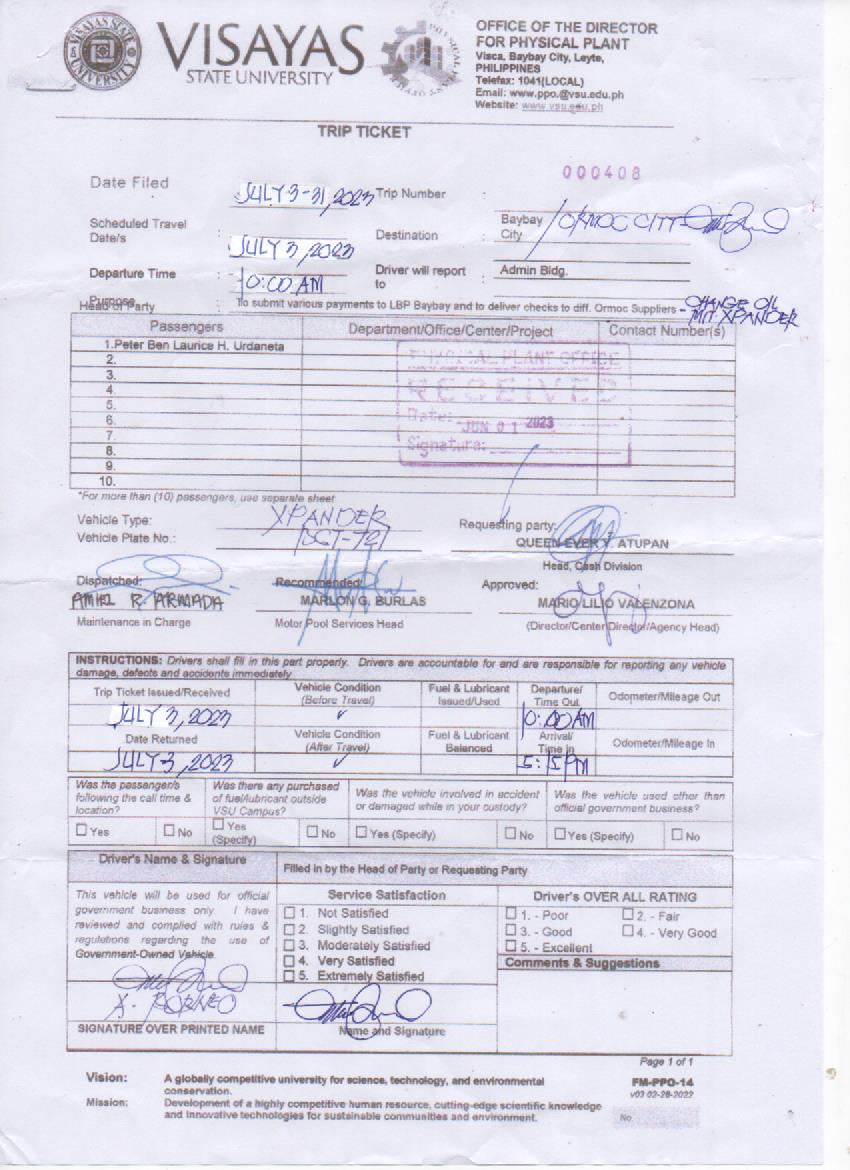 VISAYAS
STATE UNIVERSITY
VISAYAS STATE UNIVERSITY
OFFICE OF THE DIRECTOR
FOR PHYSICAL PLANT
Visca, Baybay City, Leyte,
PHILIPPINES
Telefax: 1041(LOCAL)
Email: www.ppo.@vsu.edu.ph
Website: www.vsu.edu.ph
TRIP TICKET
000408
Date Filed JULY 3-31, 2023 Trip Number :
Scheduled Travel Date/s : JULY 3, 2023 Destination : Baybay City / ORMOC CITY
Departure Time : 10:00 AM Driver will report to : Admin Bldg.
Purpose : To submit various payments to LBP Baybay and to deliver checks to diff. Ormoc Suppliers - CHANGE OIL
MIT. XPANDER
Head of Party
Passengers Department/Office/Center/Project Contact Number(s)
1. Peter Ben Laurice H. Urdaneta
2.
3.
4.
5.
6.
7.
8.
9.
10.
PHYSICAL PLANT OFFICE
RECEIVED
Date: JUN 01 2023
Signature:
*For more than (10) passengers, use separate sheet
Vehicle Type: XPANDER Requesting party:
Vehicle Plate No.:
QUEEN-EVER Y. ATUPAN
Head, Cash Division
Dispatched: Recommended: Approved:
AMIEL R. ARMADA MARLON G. BURLAS MARIO LILIO VALENZONA
Maintenance in Charge Motor Pool Services Head (Director/Center Director/Agency Head)
INSTRUCTIONS: Drivers shall fill in this part properly. Drivers are accountable for and are responsible for reporting any vehicle
damage, defects and accidents immediately
Trip Ticket Issued/Received Vehicle Condition (Before Travel) Fuel & Lubricant Issued/Used Departure/ Time Out Odometer/Mileage Out
JULY 3, 2023 ✓ 10:00 AM
Date Returned Vehicle Condition (After Travel) Fuel & Lubricant Balanced Arrival/ Time In Odometer/Mileage In
JULY 3, 2023 ✓ 5:15 PM
Was the passenger/s following the call time & location?
Was there any purchased of fuel/lubricant outside VSU Campus?
Was the vehicle involved in accident or damaged while in your custody?
Was the vehicle used other than official government business?
☐ Yes ☐ No ☐ Yes (Specify) ☐ No ☐ Yes (Specify) ☐ No ☐ Yes (Specify) ☐ No
Driver's Name & Signature
Filled in by the Head of Party or Requesting Party
This vehicle will be used for official
government business only. I have
reviewed and complied with rules &
regulations regarding the use of
Government-Owned Vehicle.
X. BORNEO
SIGNATURE OVER PRINTED NAME
Service Satisfaction
☐ 1. Not Satisfied
☐ 2. Slightly Satisfied
☐ 3. Moderately Satisfied
☐ 4. Very Satisfied
☐ 5. Extremely Satisfied
Name and Signature
Driver's OVER ALL RATING
☐ 1. - Poor ☐ 2. - Fair
☐ 3. - Good ☐ 4. - Very Good
☐ 5. - Excellent
Comments & Suggestions
Page 1 of 1
Vision: A globally competitive university for science, technology, and environmental
conservation.
Mission: Development of a highly competitive human resource, cutting-edge scientific knowledge
and innovative technologies for sustainable communities and environment.
FM-PPO-14
v03 02-28-2022
No.